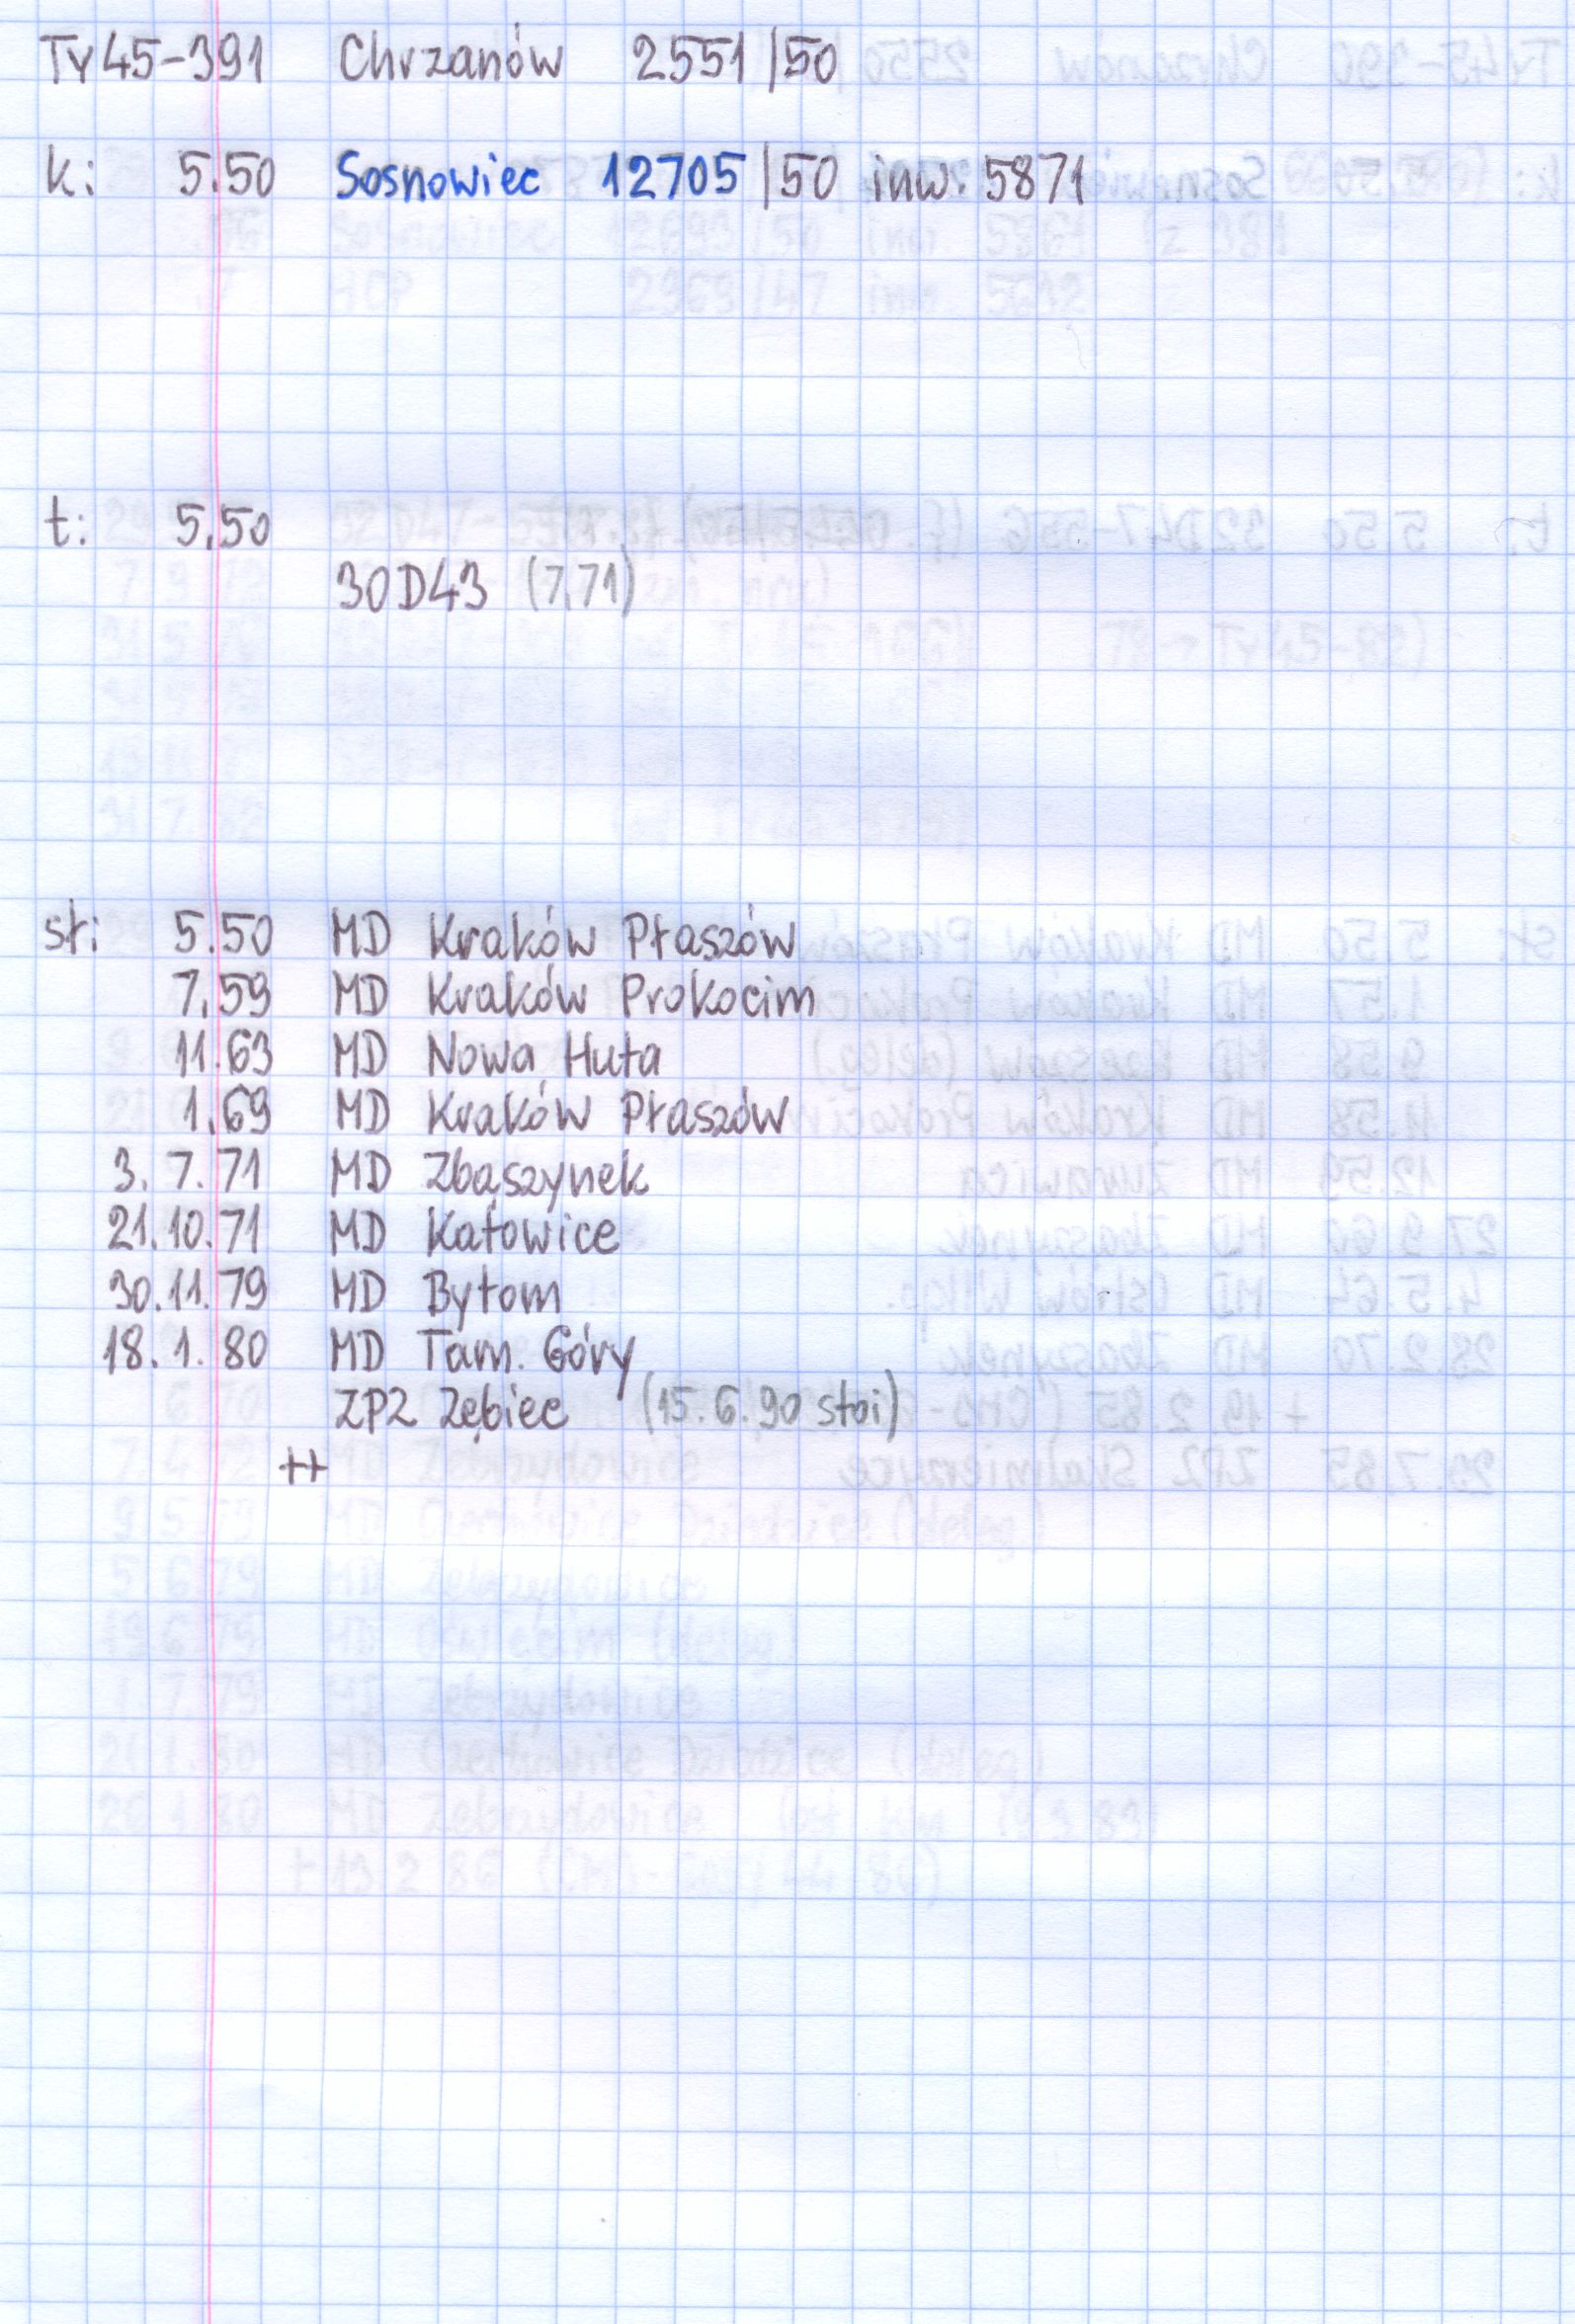 Ty45-391 Chrzanów 2551/50
k: 5.50 Sosnowiec 12705/50 inw. 5871
t: 5.50
30D43 (7.71)
st: 5.50 MD Kraków Płaszów
7.59 MD Kraków Prokocim
11.63 MD Nowa Huta
1.69 MD Kraków Płaszów
3.7.71 MD Zbąszynek
21.10.71 MD Katowice
30.11.79 MD Bytom
18.1.80 MD Tarn. Góry
ZPZ Zębiec (15.6.90 stoi)
++